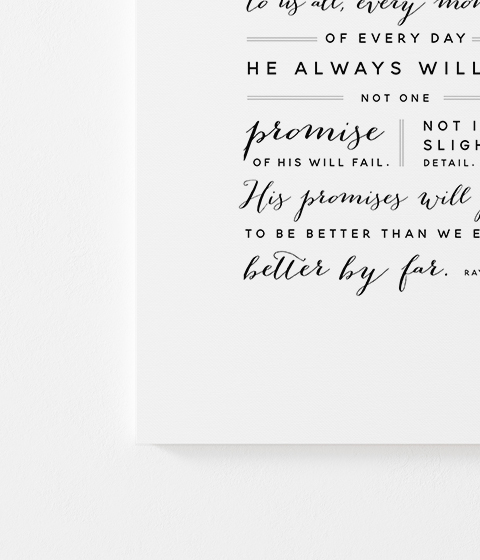 to us all, every
OF EVERY DAY
HE ALWAYS WILL
NOT ONE
promise
OF HIS WILL FAIL.
NOT
SLIGH
DETAIL.
His promises will
TO BE BETTER THAN WE E
better by far. RAY